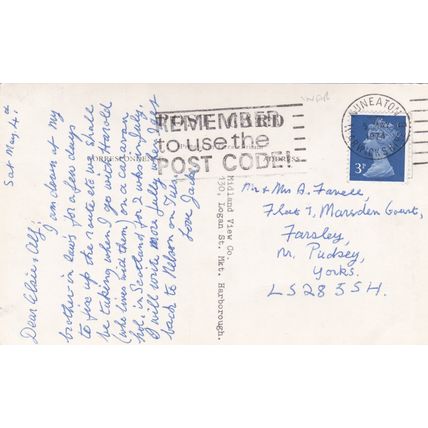 Sat May 4th.
Dear Clair & Alf,
I am down at my
brother in laws for a few days
to fix up the route etc we shall
be taking when I go with Harold
(who lives with them) on a caravan
hol. in Scotland for 2 wks in July.
I will write more fully when I get
back to Nelson on Tues.
Love Jack
CORRESPONDENCE
ADDRESS
Midland View Co.
130, Logan St. Mkt. Harborough.
REMEMBER
to use the
POST CODE!
NUNEATON
WARWICKSHIRE
1974
3P
WAR
Mr & Mrs A. Favell,
Flat 7, Marsden Court,
Farsley,
Nr. Pudsey,
Yorks.
LS28 5SH.